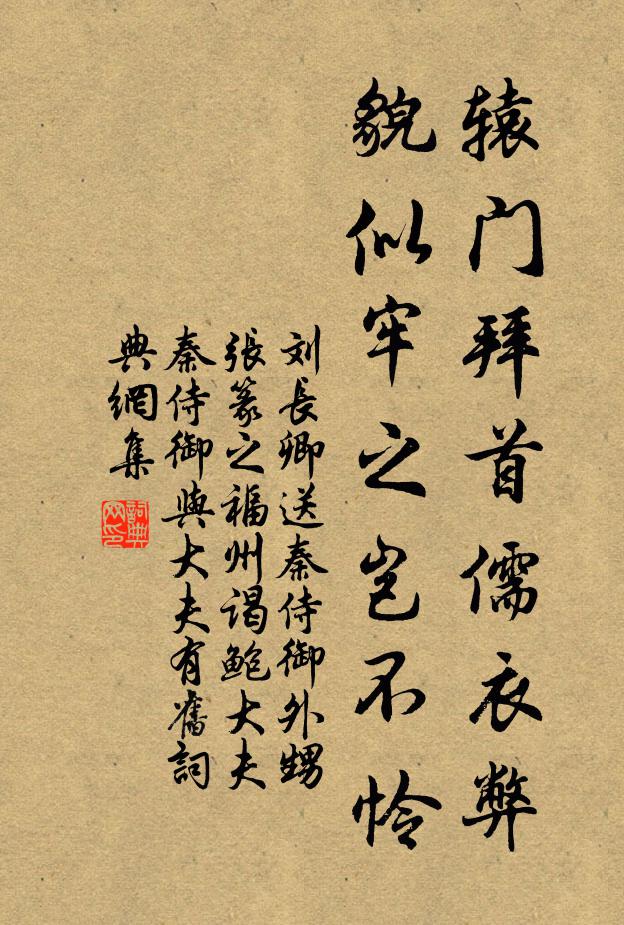 辕门拜首儒衣弊
貌似牢之岂不怜
刘長卿送秦侍御外甥
張篆之福州谒鲍大夫
秦侍御與大夫有舊詞
典網集
詞典網印